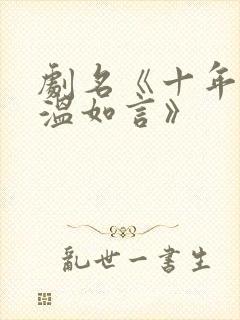 劇名《十年
溫如言》
亂世一書生